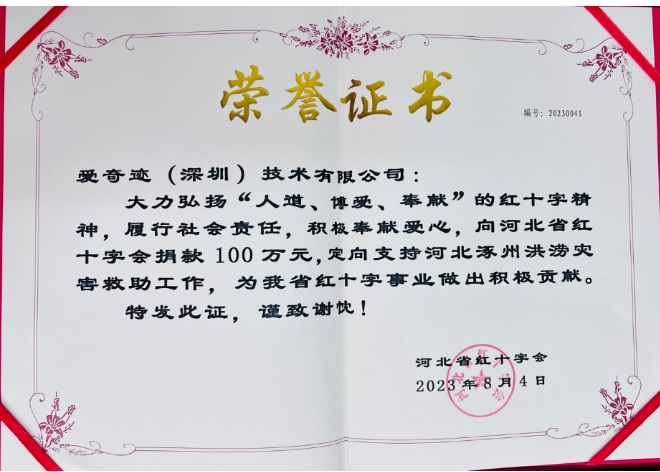 荣誉证书
编号：20230041
爱奇迹（深圳）技术有限公司：
大力弘扬“人道、博爱、奉献”的红十字精
神，履行社会责任，积极奉献爱心，向河北省红
十字会捐款100万元，定向支持河北涿州洪涝灾
害救助工作，为我省红十字事业做出积极贡献。
特发此证，谨致谢忱！
河北省红十字会
2023年8月4日